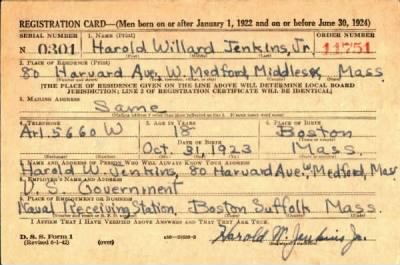 REGISTRATION CARD—(Men born on or after January 1, 1922 and on or before June 30, 1924)
SERIAL NUMBER 1. NAME (Print) ORDER NUMBER
N 0301 Harold Willard Jenkins, Jr. 11751
2. PLACE OF RESIDENCE (Print)
80 Harvard Ave, W. Medford, Middlesex, Mass
[THE PLACE OF RESIDENCE GIVEN ON THE LINE ABOVE WILL DETERMINE LOCAL BOARD
JURISDICTION; LINE 2 OF REGISTRATION CERTIFICATE WILL BE IDENTICAL]
3. MAILING ADDRESS
Same
4. TELEPHONE 5. AGE IN YEARS 6. PLACE OF BIRTH
Arl. 5660 W 18 Boston
DATE OF BIRTH
Oct. 31, 1923 Mass.
7. NAME AND ADDRESS OF PERSON WHO WILL ALWAYS KNOW YOUR ADDRESS
Harold W. Jenkins, 80 Harvard Ave., Medford, Mass
8. EMPLOYER'S NAME AND ADDRESS
U.S. Government
9. PLACE OF EMPLOYMENT OR BUSINESS
Naval Receiving Station, Boston Suffolk Mass.
I AFFIRM THAT I HAVE VERIFIED ABOVE ANSWERS AND THAT THEY ARE TRUE.
D. S. S. Form 1
(Revised 6-1-42) (over) Harold W. Jenkins Jr.